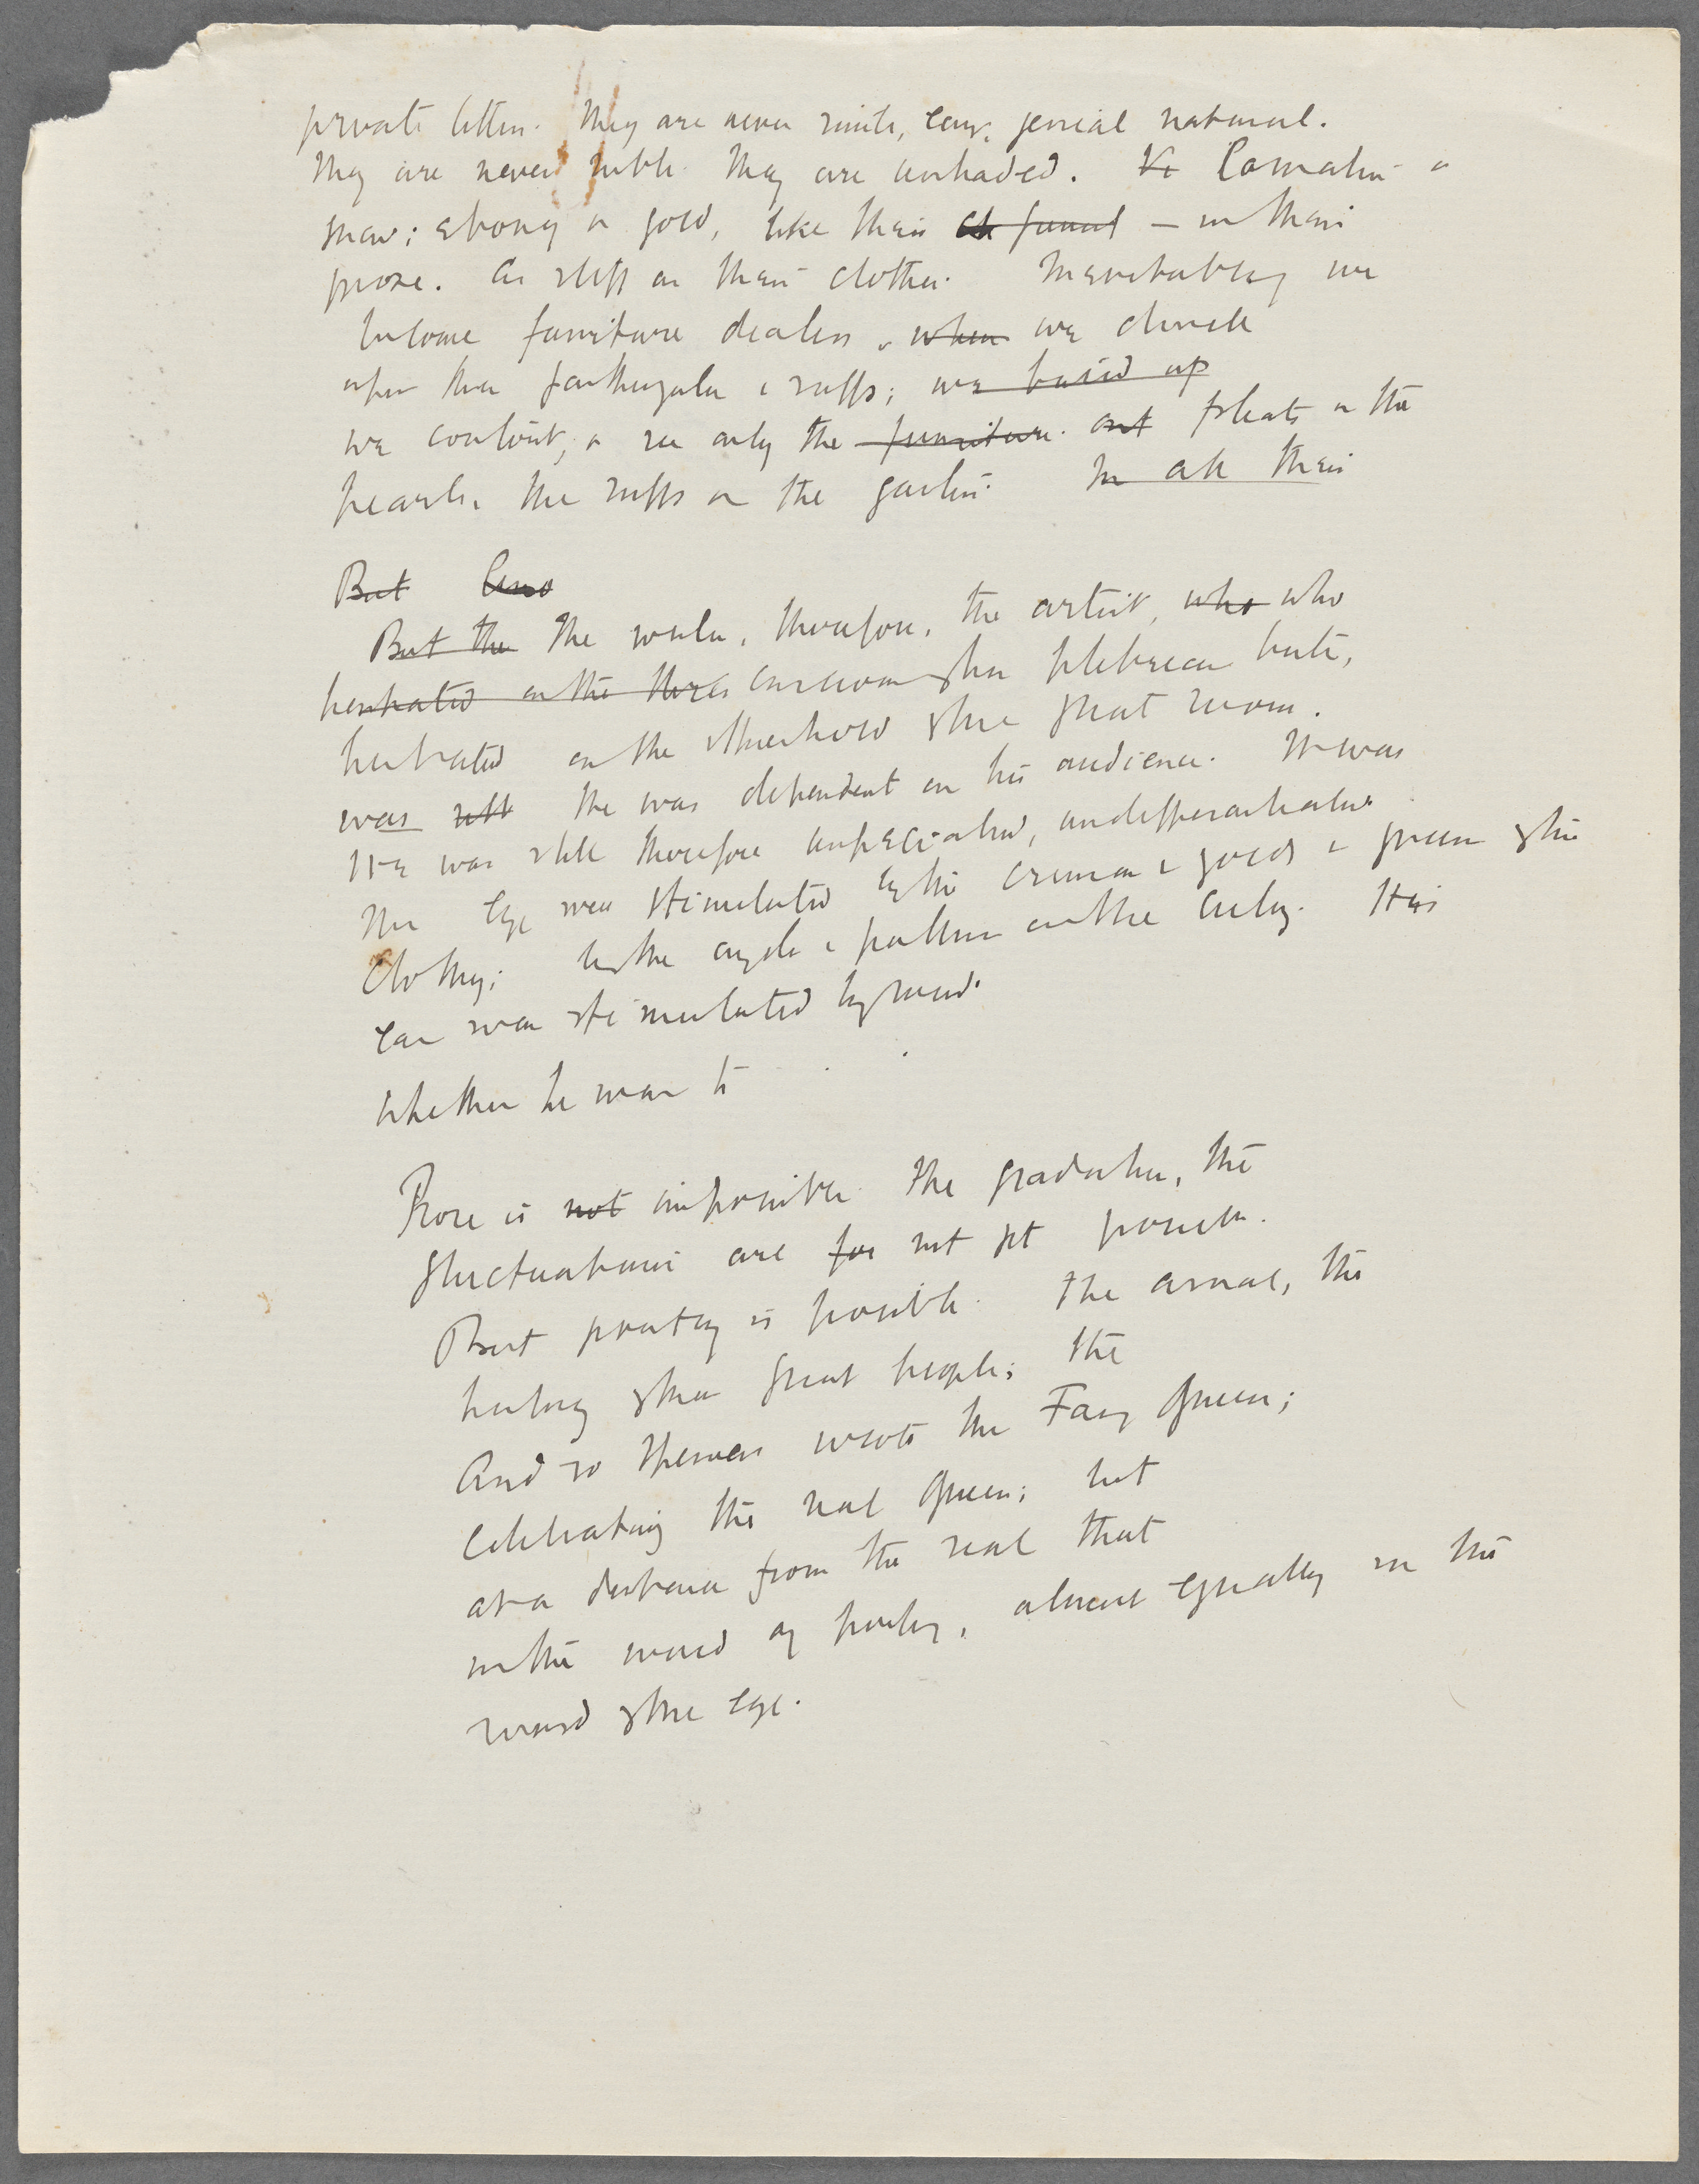 private letters. They are never simple, easy, genial natural.
They are never subtle. They are unshaded. Carnation or
snow; ebony or gold, like their — in their
prose. As stiff as their clothes. Inevitably we
become furniture dealers, when we
upon their farthingales & ruffs; we build up
we confront, & see only the furniture. and pleats or the
pearls, the ruffs or the garters. In all their
But
But the The writer, therefore, the artist, who who
hesitated on the conscious of his plebeian birth,
hesitated on the threshold of the great room.
was still He was dependent on his audience. It was
He was still therefore unspecialised, undifferentiated.
His eye was stimulated by the crimson & gold & green of the
clothes; by the angels & pattern on the ceiling. His
ear was stimulated by music.
whether he was to
Prose is not impossible. The gradation, the
fluctuations are for not yet possible.
But poetry is possible. The arras, the
of the great people; the
And so Spenser wrote the Faery Queen;
Celebrating the real Queen; but
at a distance from the real that
in the world of poetry, almost equally in the
world of the eye.